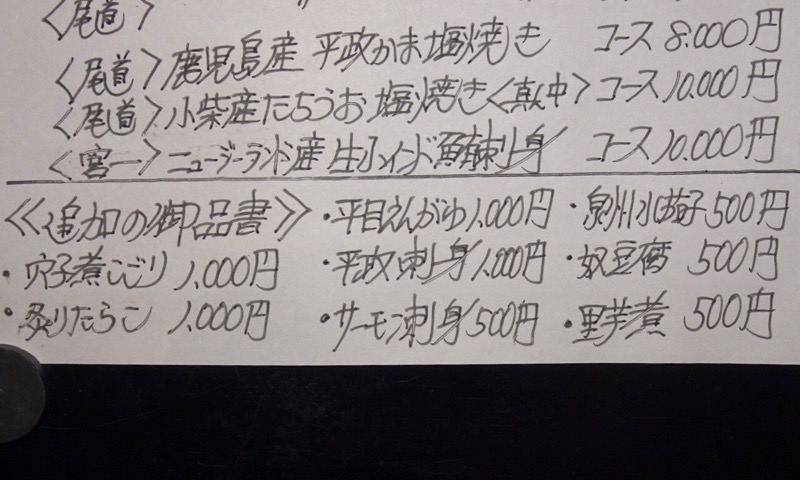 〈尾道〉
〈尾道〉鹿児島産 平政かま塩焼き コース 8.000円
〈尾道〉小柴産たちうお 塩焼き〈真中〉コース 10.000円
〈宮一〉ニュージーランド産 生インド鮪刺し身 コース 10.000円
《追加の御品書》・平目えんがわ 1.000円 ・泉州水茄子 500円
・穴子煮こごり 1.000円 ・平政刺し身 1.000円 ・奴豆腐 500円
・炙りたらこ 1.000円 ・サーモン刺し身 500円 ・里芋煮 500円